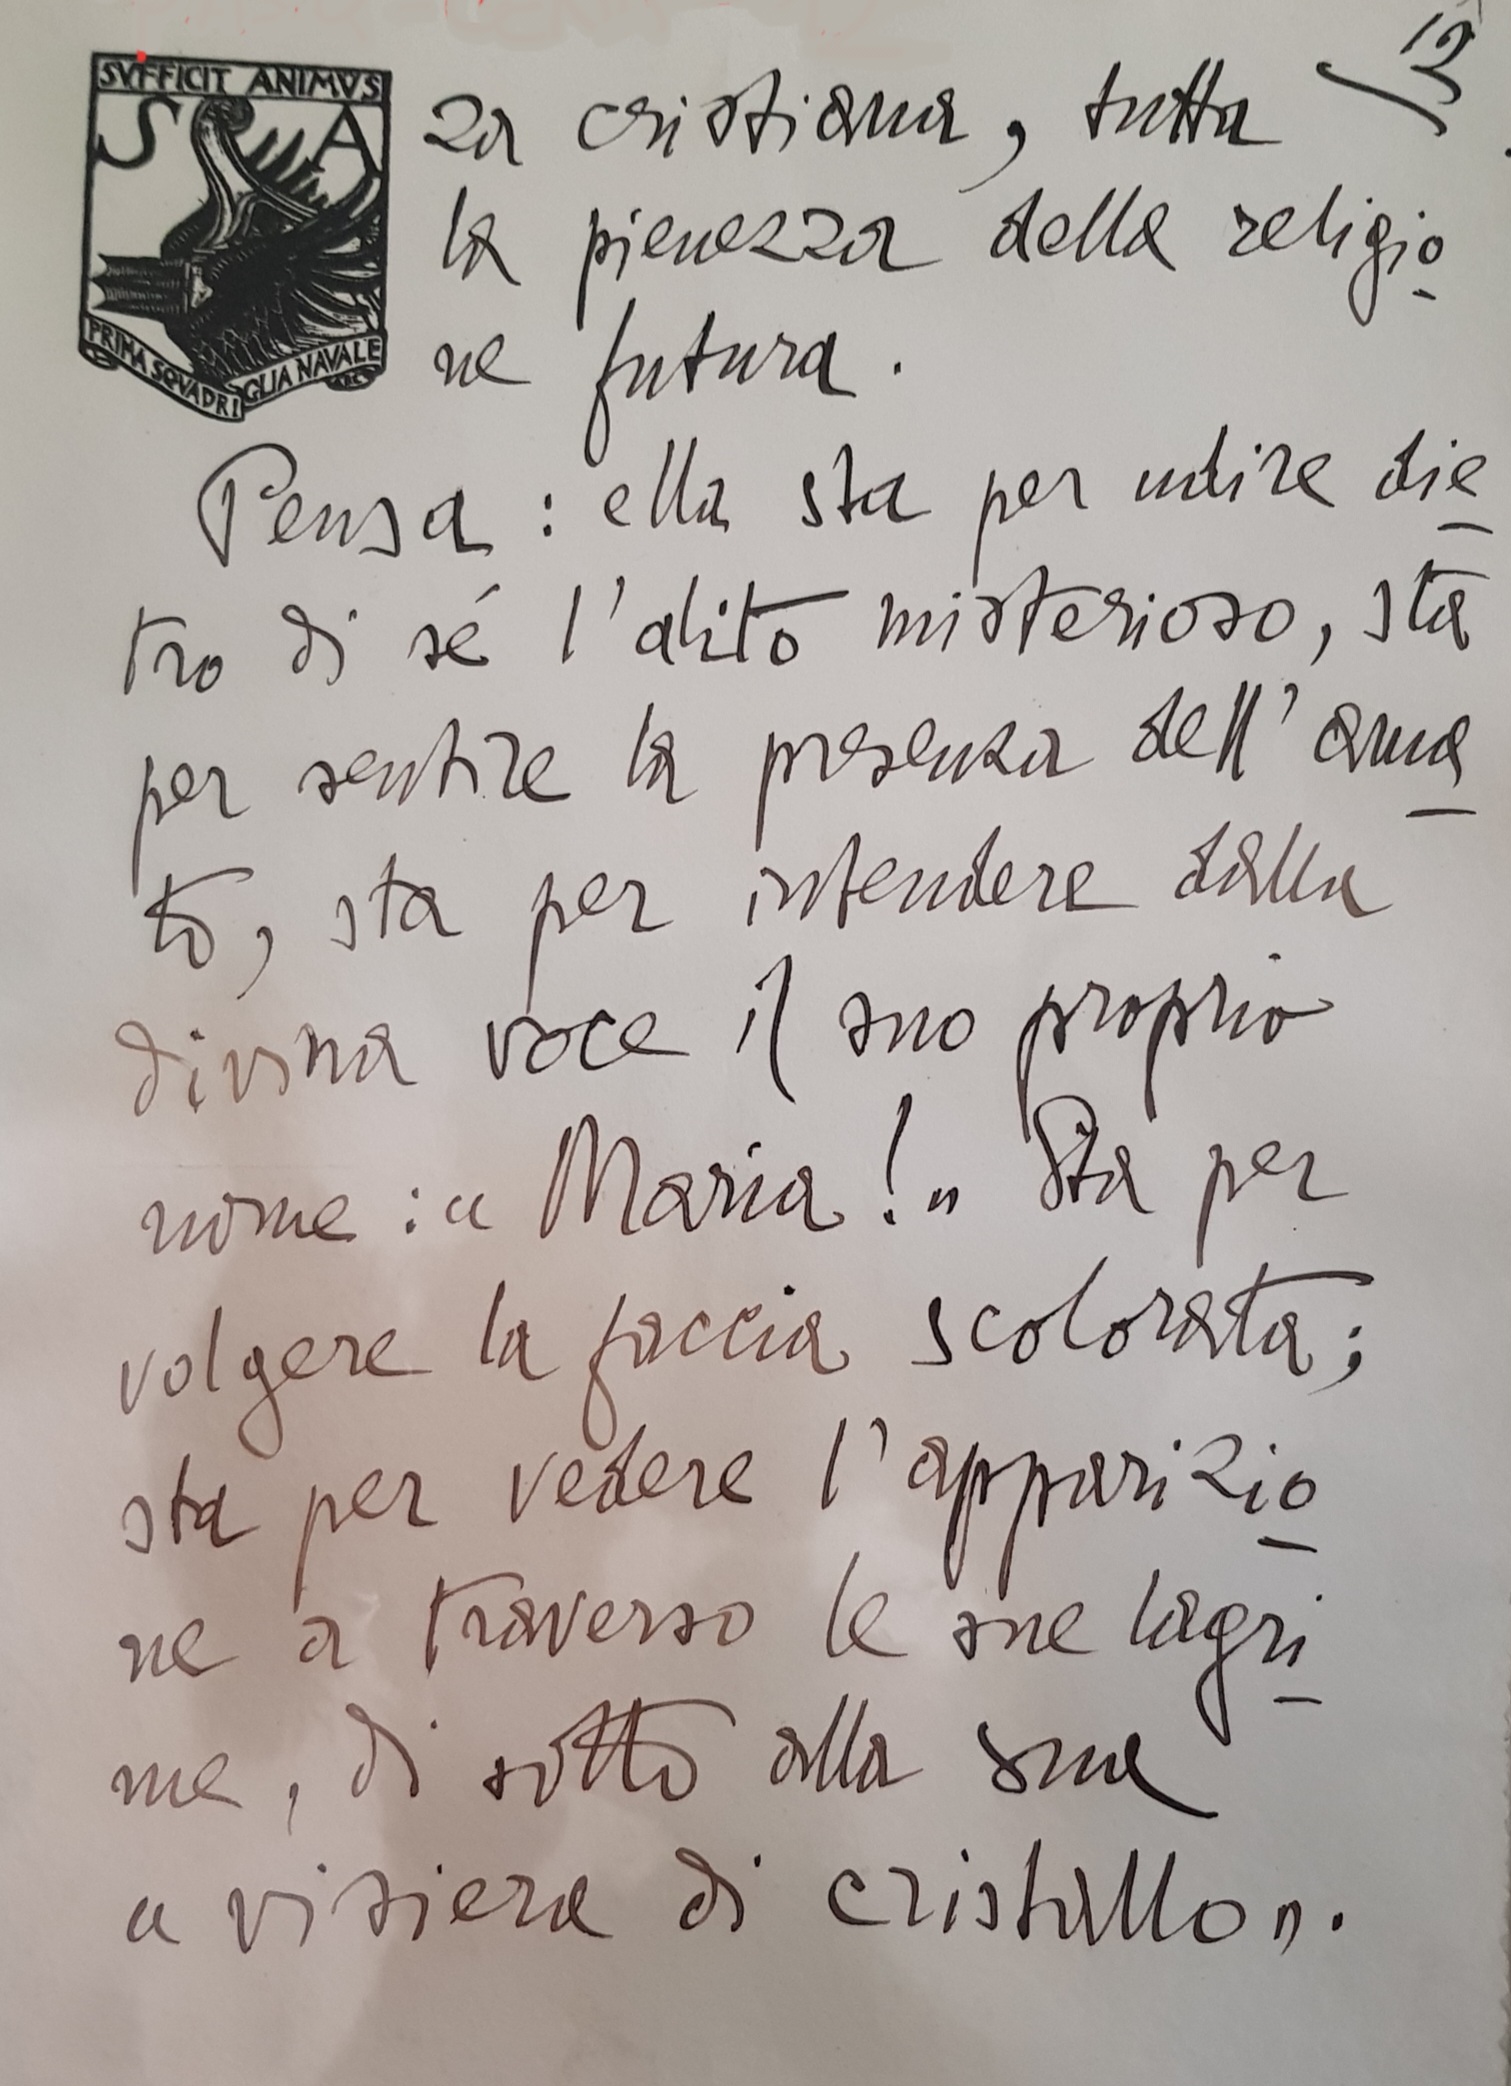 SVFFICIT ANIMVS
S A
PRIMA SQVADRIGLIA NAVALE
12
za cristiana, tutta
la pienezza della religio
ne futura.
Pensa: ella sta per udire die
tro di sé l'alito misterioso, sta
per sentire la presenza dell'ama
to, sta per intendere dalla
divina voce il suo proprio
nome: « Maria! » Sta per
volgere la faccia scolorata;
sta per vedere l'apparizio
ne a traverso le sue lagri
me, di sotto alla sua
« visiera di cristallo ».